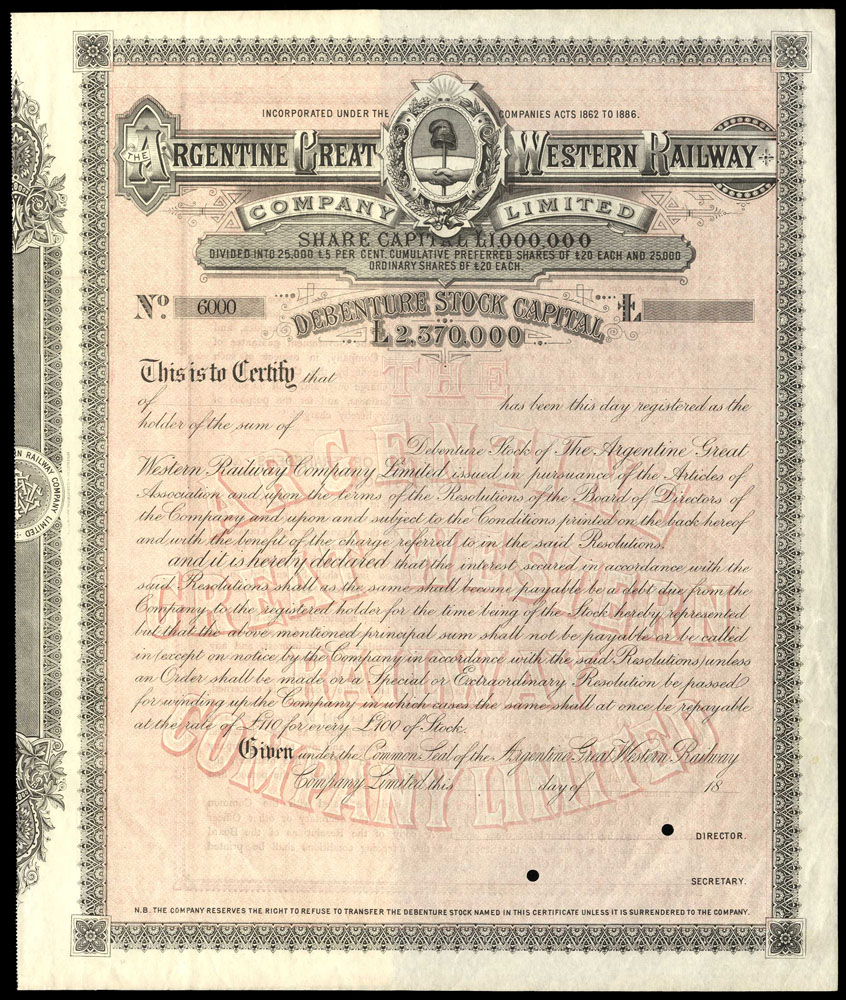 INCORPORATED UNDER THE COMPANIES ACTS 1862 TO 1886.
THE ARGENTINE GREAT WESTERN RAILWAY
COMPANY LIMITED
SHARE CAPITAL £1,000,000
DIVIDED INTO 25,000 £5 PER CENT. CUMULATIVE PREFERRED SHARES OF £20 EACH AND 25,000
ORDINARY SHARES OF £20 EACH.
No. 6000 DEBENTURE STOCK CAPITAL £
£2,370,000
This is to Certify that
of has been this day registered as the
holder of the sum of
Debenture Stock of The Argentine Great
Western Railway Company Limited issued in pursuance of the Articles of
Association and upon the terms of the Resolutions of the Board of Directors of
the Company and upon and subject to the Conditions printed on the back hereof
and with the benefit of the charge referred to in the said Resolutions.
and it is hereby declared that the interest secured in accordance with the
said Resolutions shall as the same shall become payable be a debt due from the
Company to the registered holder for the time being of the Stock hereby represented
but that the above mentioned principal sum shall not be payable or be called
in (except on notice by the Company in accordance with the said Resolutions) unless
an Order shall be made or a Special or Extraordinary Resolution be passed
for winding up the Company in which cases the same shall at once be repayable
at the rate of £110 for every £100 of Stock.
Given under the Common Seal of the Argentine Great Western Railway
Company Limited this day of 18
DIRECTOR.
SECRETARY.
N.B. THE COMPANY RESERVES THE RIGHT TO REFUSE TO TRANSFER THE DEBENTURE STOCK NAMED IN THIS CERTIFICATE UNLESS IT IS SURRENDERED TO THE COMPANY.
THE
ARGENTINE
GREAT WESTERN
RAILWAY
COMPANY LIMITED
RAILWAY COMPANY LIMITED